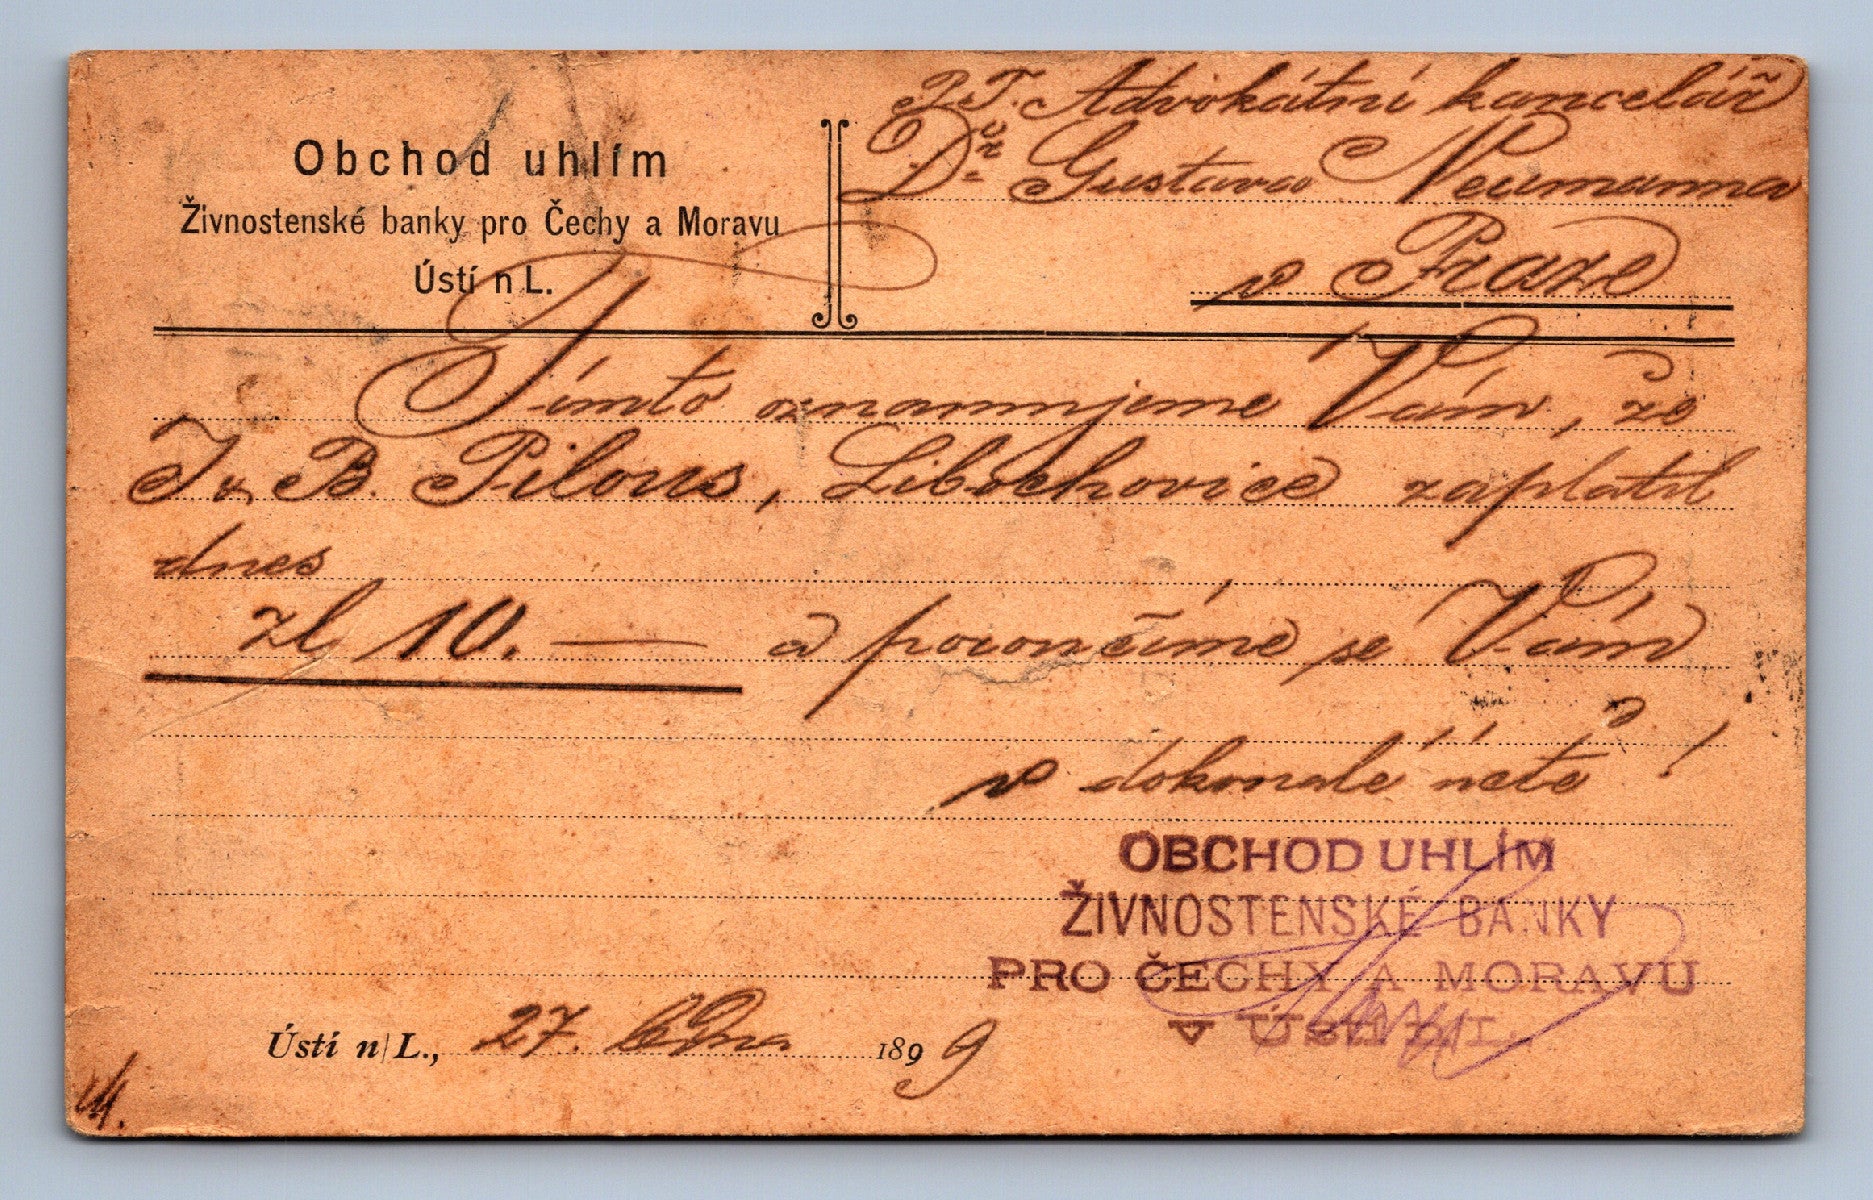 Obchod uhlím
Živnostenské banky pro Čechy a Moravu
Ústí n L.
P. T. Advokátní kancelář
Dra Gustava Neumanna
v Praze
Tímto oznamujeme Vám, že
J. B. Pilous, Libochovice zaplatil
dnes
zl 10. — a poroučíme se Vám
v dokonalé úctě!
OBCHOD UHLÍM
ŽIVNOSTENSKÉ BANKY
PRO ČECHY A MORAVU
V ÚSTÍ N. L.
Ústí n/L., 27. 1899